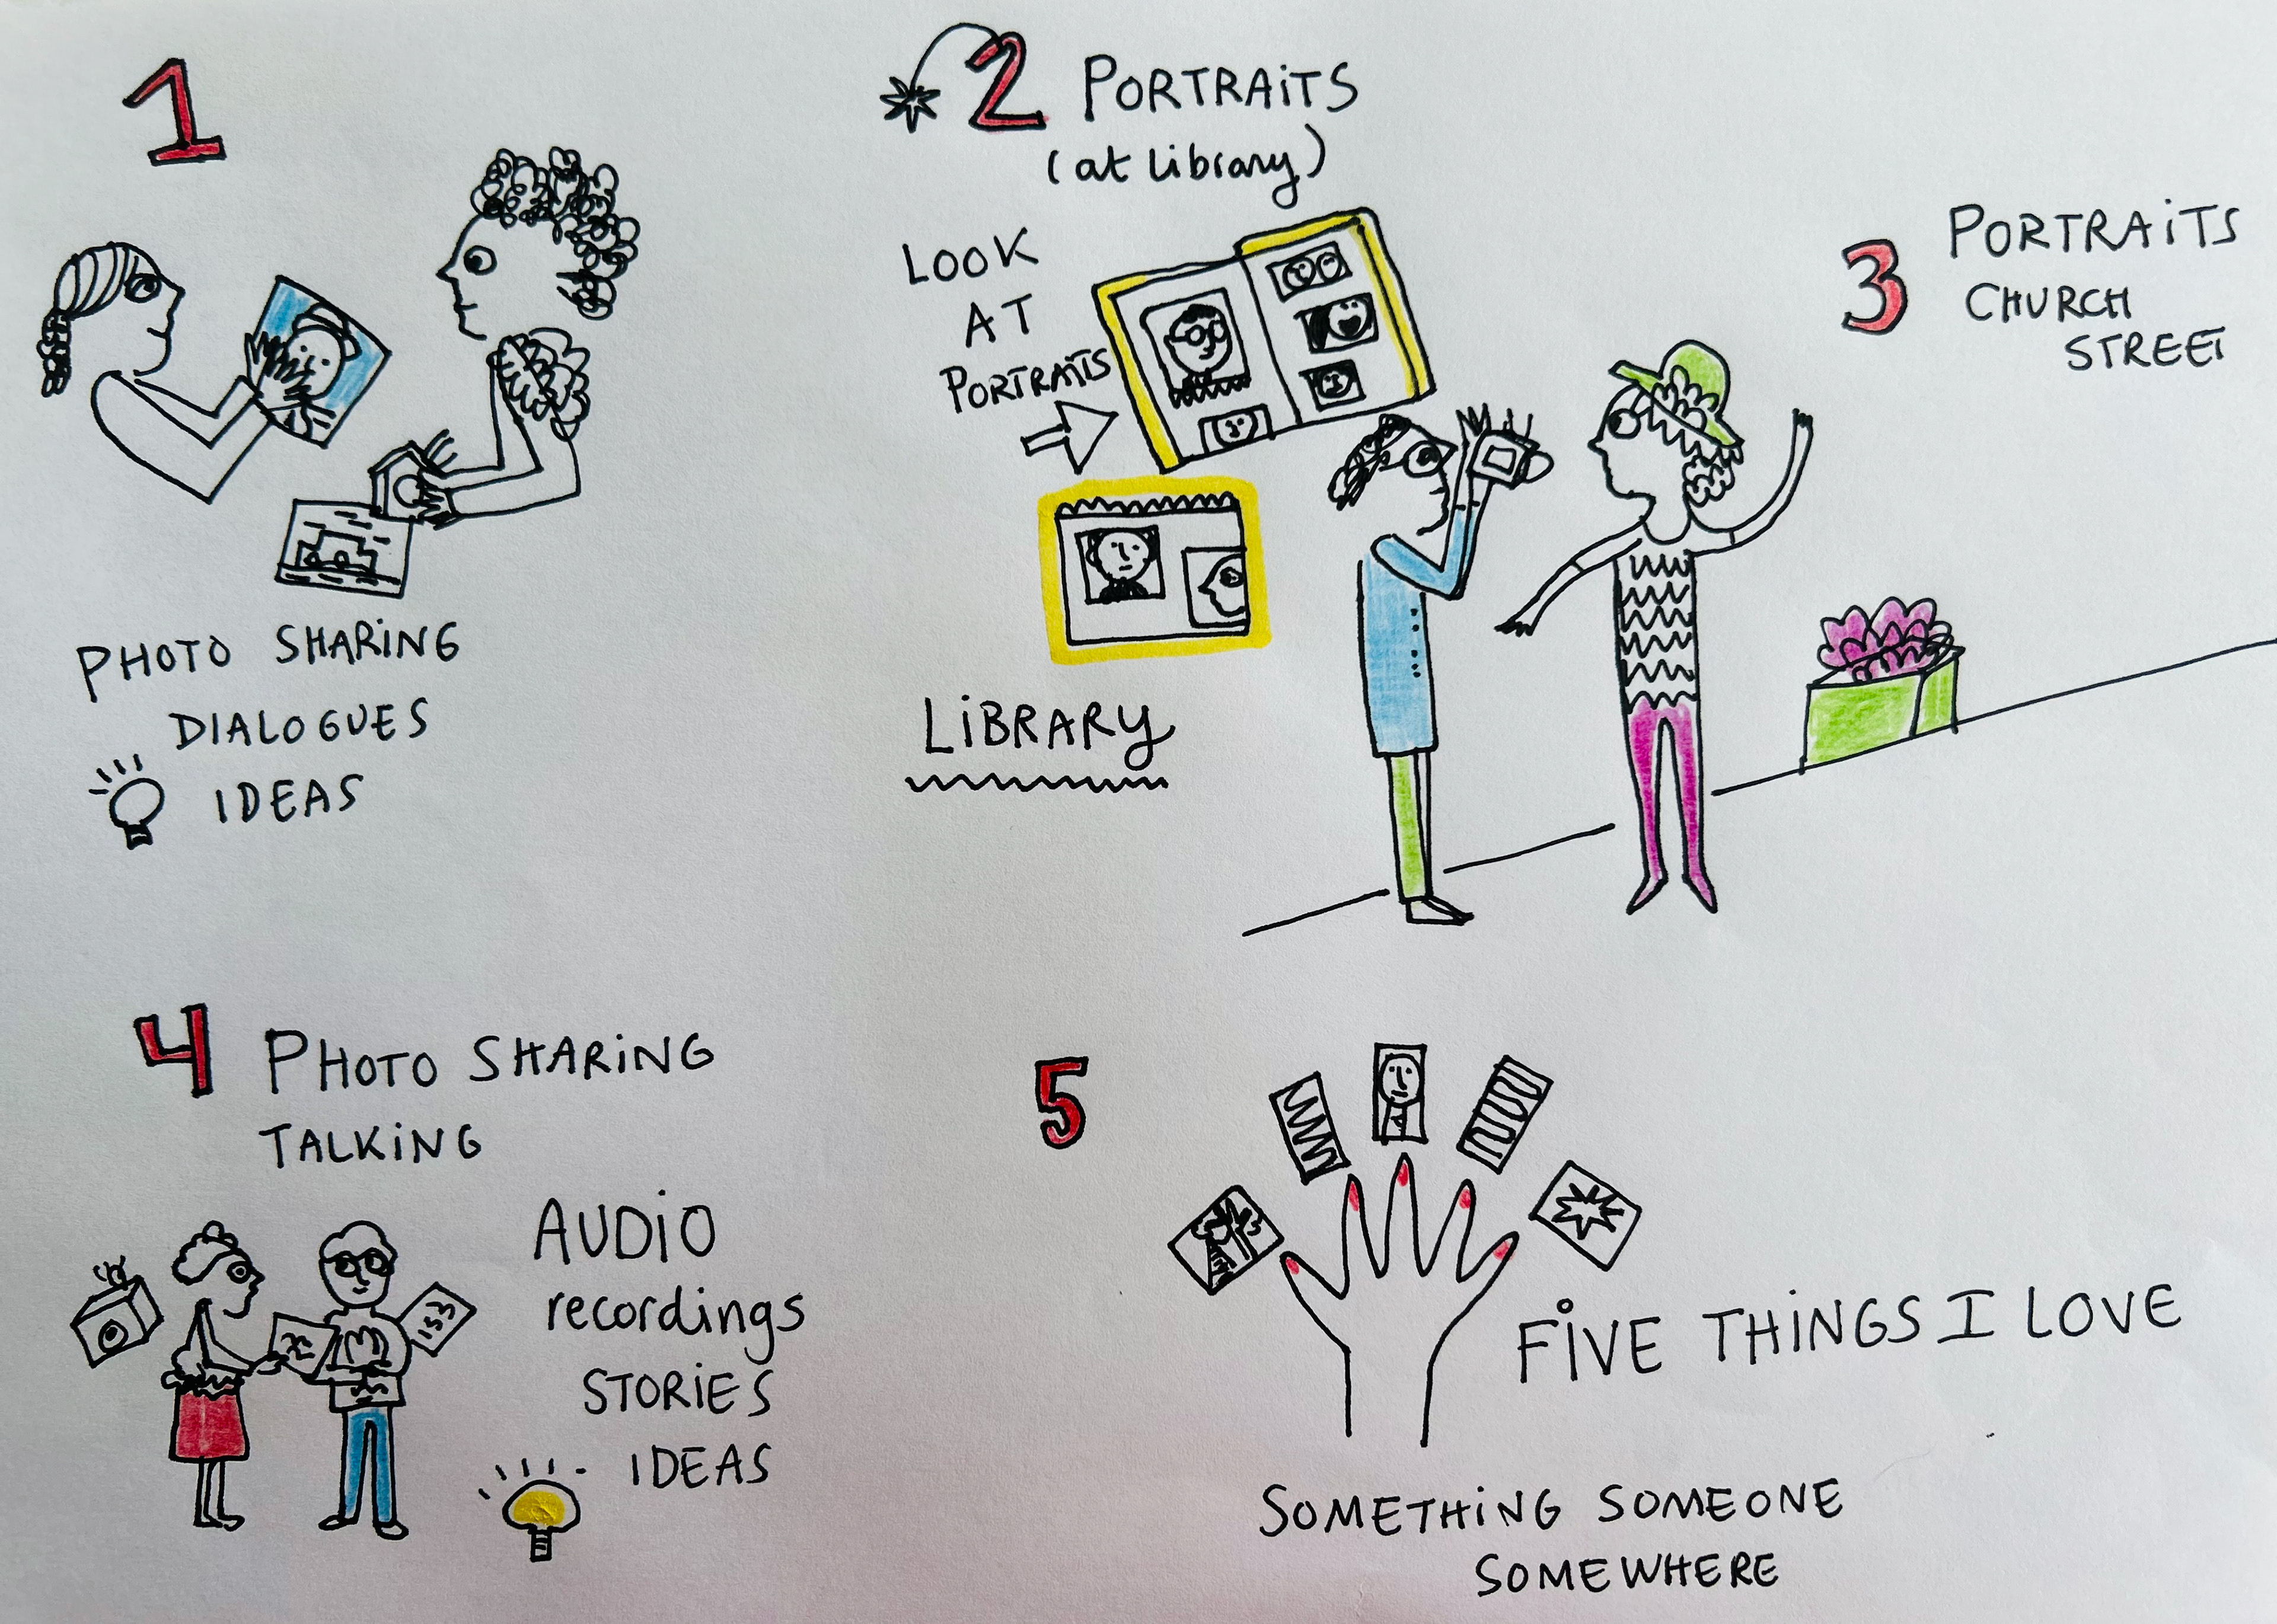 1
PHOTO SHARING
DIALOGUES
IDEAS
2 PORTRAITS
(at library)
LOOK
AT
PORTRAITS
LIBRARY
3 PORTRAITS
CHURCH
STREET
4 PHOTO SHARING
TALKING
AUDIO
recordings
STORIES
IDEAS
5
FIVE THINGS I LOVE
SOMETHING SOMEONE
SOMEWHERE